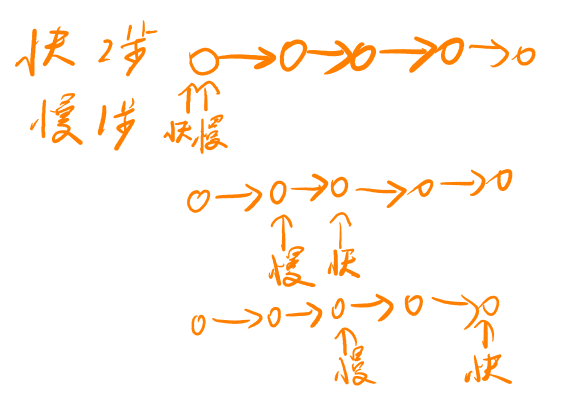 快 2步
慢 1步
快 慢
慢 快
慢 快